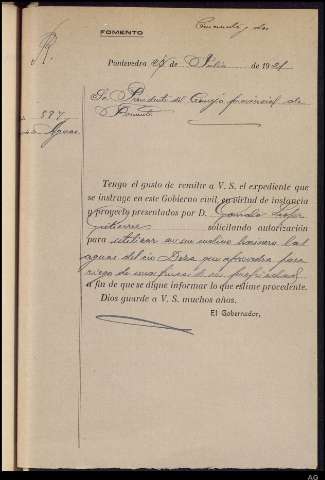 Cincuenta y dos
FOMENTO
R.
Pontevedra 27 de Julio de 1921
587
Aguas.
Sr. Presidente del Consejo provincial de
Fomento
Tengo el gusto de remitir a V. S. el expediente que
se instruye en este Gobierno civil, en virtud de instancia
y proyecto presentados por D.
Gutierrez solicitando autorización
para utilizar en un molino harinero las
aguas del rio Deza que aprovecha para
riego de una finca de su propiedad
a fin de que se digne informar lo que estime procedente.
Dios guarde a V. S. muchos años.
El Gobernador,
AG